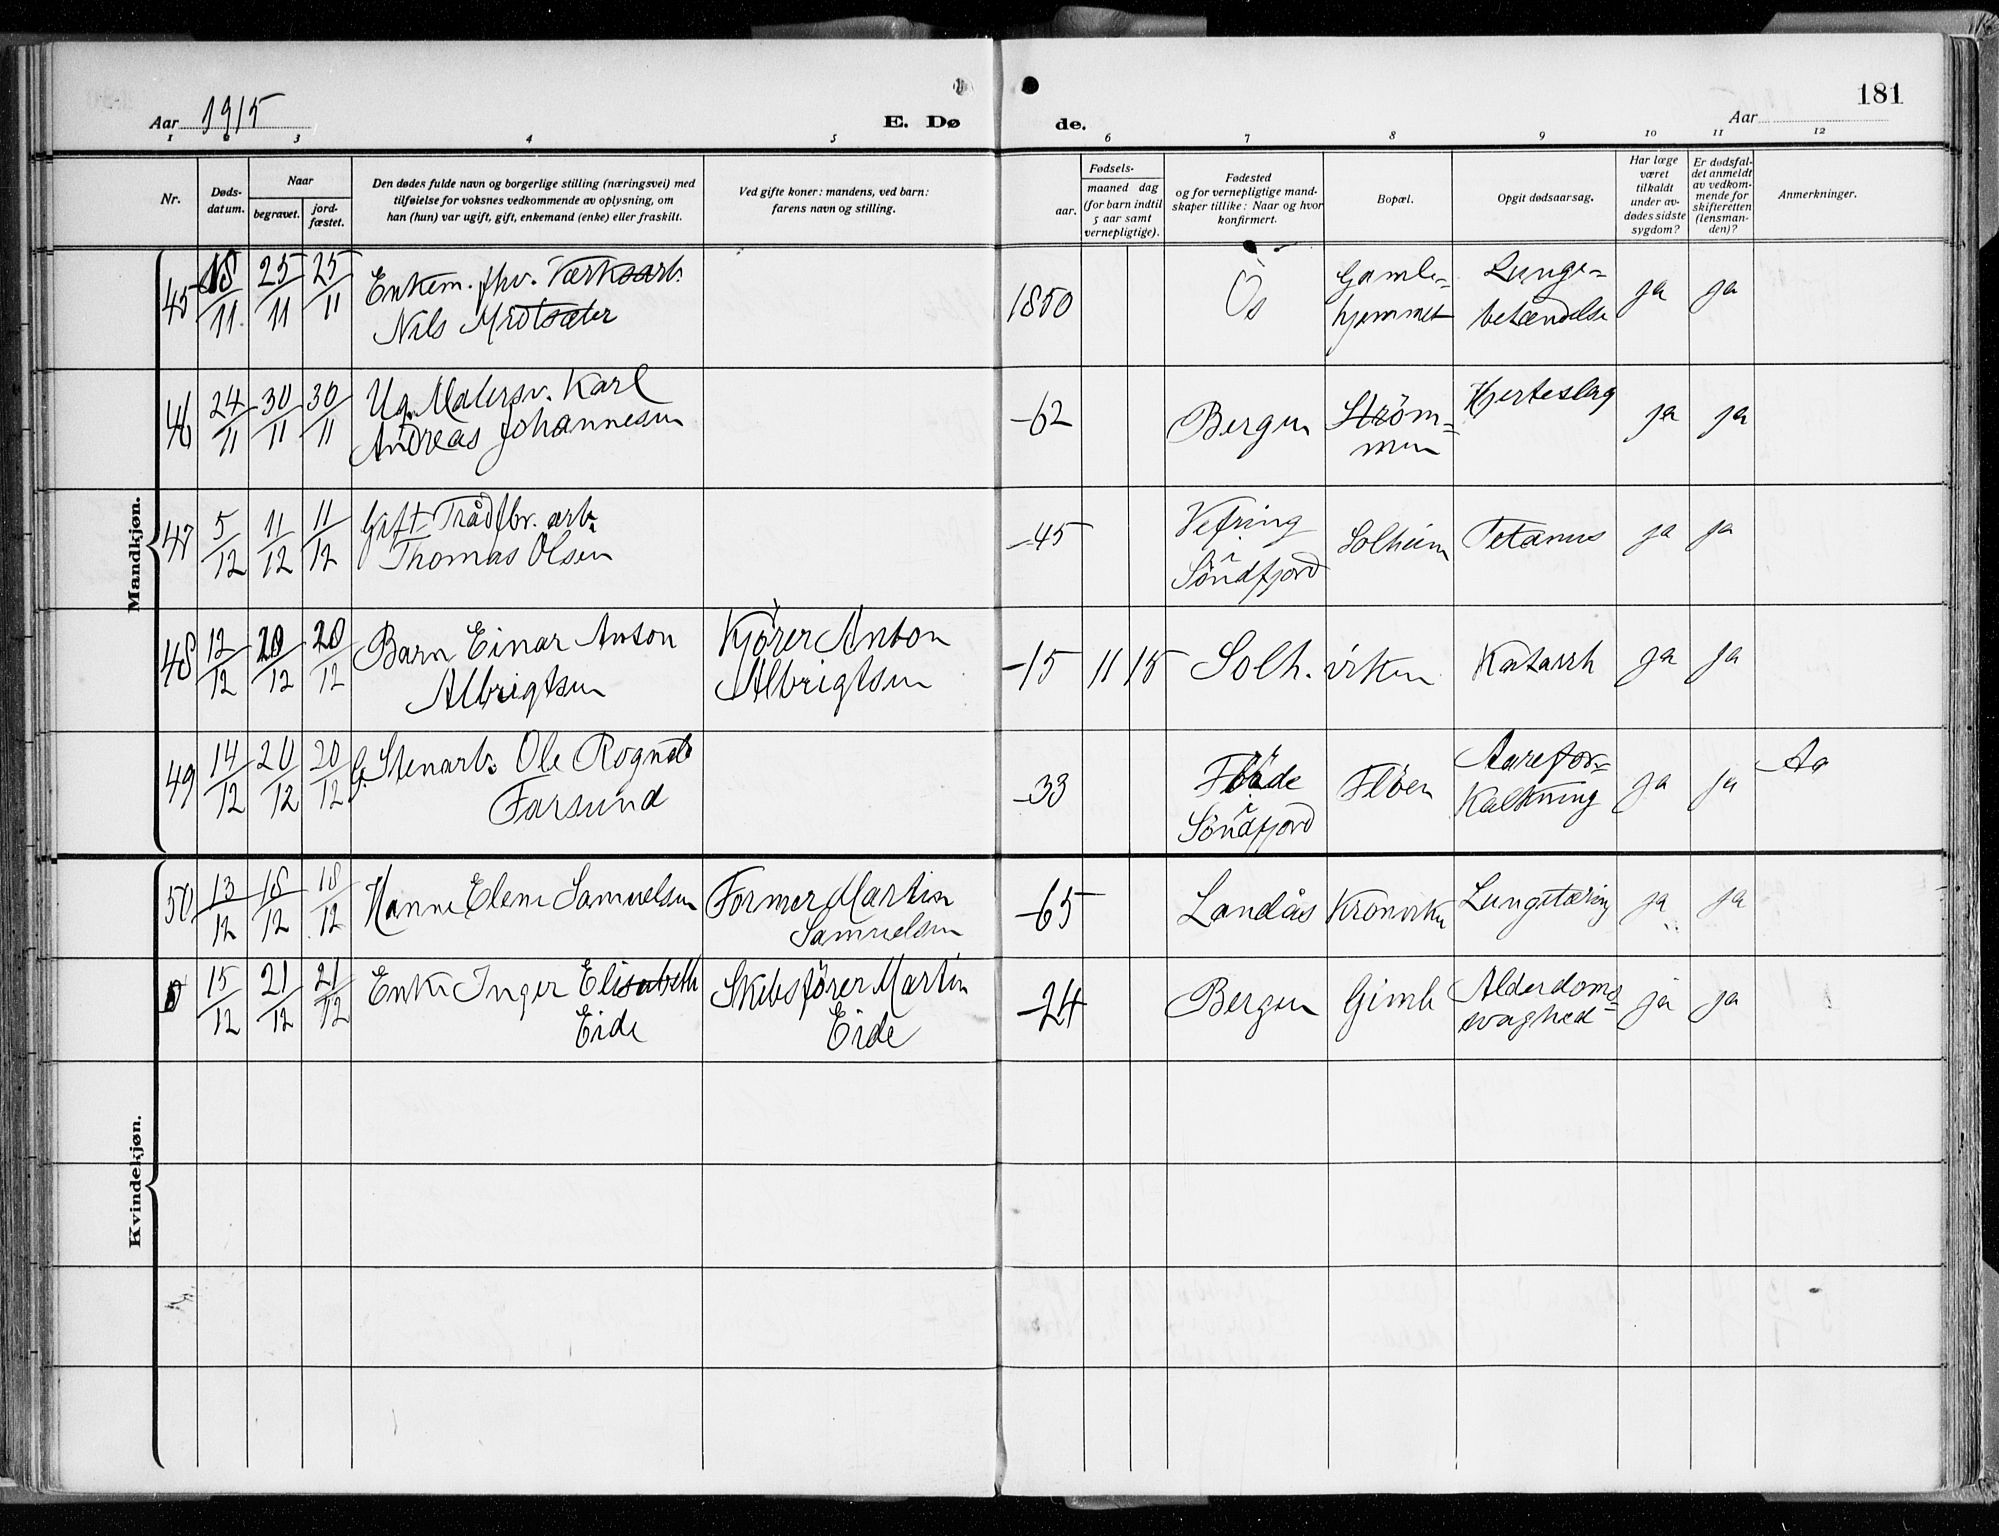 Aar 1915
E. Dø
de.
Aar
181
1 2 3 4 5 6 7 8 9 10 11 12
Nr.
Døds-
datum.
Naar
begravet.
jord-
fæstet.
Den dødes fulde navn og borgerlige stilling (næringsvei) med
tilføielse for voksnes vedkommende av oplysning, om
han (hun) var ugift, gift, enkemand (enke) eller fraskilt.
Ved gifte koner: mandens, ved barn:
farens navn og stilling.
Fødsels-
aar.
maaned dag
(for barn indtil
5 aar samt
vernepligtige).
Fødested
og for vernepligtige mand-
skaper tillike: Naar og hvor
konfirmert.
Bopæl.
Opgit dødsaarsag.
Har læge
været
tilkaldt
under av-
dødes sidste
sygdom?
Er dødsfal-
det anmeldt
av vedkom-
mende for
skifteretten
(lensman-
den)?
Anmerkninger.
Mandkjøn.
45 18/11 25/11 25/11 Enkem. fhv. Værksarb.
Nils Midtsæter
1850 Os Gamle-
hjemmet Lunge-
betændelse ja ja
46 24/11 30/11 30/11 Ug. Malersv. Karl
Andreas Johannesen
-62 Bergen Strøm-
men Hjerteslag ja ja
47 5/12 11/12 11/12 Gift Trådfbr. arb.
Thomas Olsen
-45 Vefring
i
Söndfjord Solheim Tetanus ja ja
48 12/12 20/12 20/12 Barn Einar Anton
Albrigtsen
Kjörer Anton
Albrigtsen
-15 11 15 Solh. viken Katarrh ja ja
49 14/12 20/12 20/12 G. Stenarb. Ole Rognald
Farsund
-33 Förde
i
Söndfjord Flöen Aarefor-
kalkning ja ja Aa
Kvindekjøn.
50 13/12 18/12 18/12 Hanne Elene Samuelsen
Former Martin
Samuelsen
-65 Landås Kronvike Lungetæring ja ja
15/12 21/12 21/12 Enke Inger Elisabeth
Eide
Skibsfører Martin
Eide
-24 Bergen Gimle Alderdoms-
svaghed ja ja